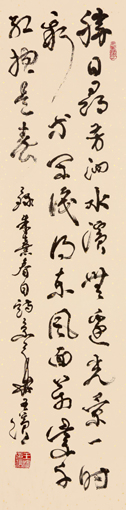 勝日尋芳泗水濱無邊光景一時
新等閒識得東風面萬紫千
紅總是春
錄朱熹春日詩